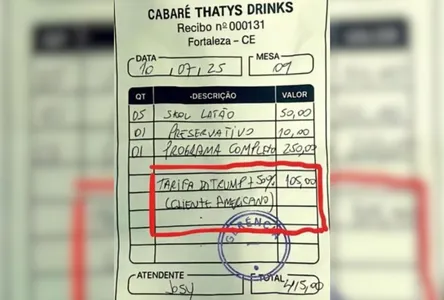 CABARÉ THATYS DRINKS
Recibo nº 000131
Fortaleza - CE
DATA 10, 07, 25 MESA 09
QT DESCRIÇÃO VALOR
05 SKOL LATÃO 50,00
01 PRESERVATIVO 10,00
01 PROGRAMA COMPLETO 250,00
TARIFA DO TRUMP + 50% 105,00
(CLIENTE AMERICANO)
GERÊNCIA
ATENDENTE TOTAL
Josy 415,00